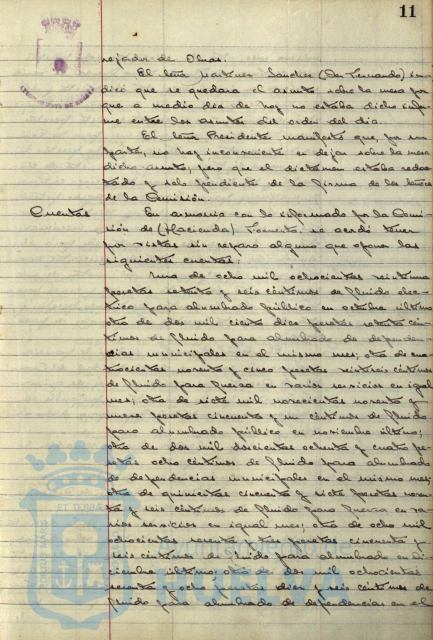 11
cejador de Obras.
El Señor Martínez Sánchez (Don Fernando) in-
dicó que se quedara el asunto sobre la mesa por
que a medio dia de hoy no estaba dicho infor-
me entre los asuntos del orden del dia.
El Señor Presidente manifestó que, por su
parte, no hay inconveniente en dejar sobre la mesa
dicho asunto, pero que el dictamen estaba redac-
tado y solo pendiente de la firma de los Señores
de la Comisión.
Cuentas
En armonia con lo informado por la Comi-
sión de (Hacienda) Fomento, se acordó tener
por vistas sin reparo alguno que oponer las
siguientes cuentas:
Una de ocho mil ochocientas veintiuna
pesetas setenta y seis céntimos de fluido eléc-
trico para alumbrado público en octubre último
otra de dos mil ciento diez pesetas setenta cén-
timos de fluido para alumbrado de dependen-
cias municipales en el mismo mes; otra de cua-
trocientas noventa y cinco pesetas veintiseis céntimos
de fluido para fuerza en varios servicios en igual
mes; otra de siete mil novecientas noventa y
nueve pesetas cincuenta y un céntimos de fluido
para alumbrado público en noviembre último;
otra de dos mil doscientas ochenta y cuatro pe-
setas ocho céntimos de fluido para alumbrado
de dependencias municipales en el mismo mes;
otra de quinientas cincuenta y siete pesetas noven-
ta y seis céntimos de fluido para fuerza en va-
rios servicios en igual mes; otra de ocho mil
ochocientas sesenta y tres pesetas cincuenta y
seis céntimos de fluido para alumbrado en Di-
ciembre último; otra de dos mil ochocientas
sesenta y ocho pesetas diez y seis céntimos de
fluido para alumbrado de dependencias en el